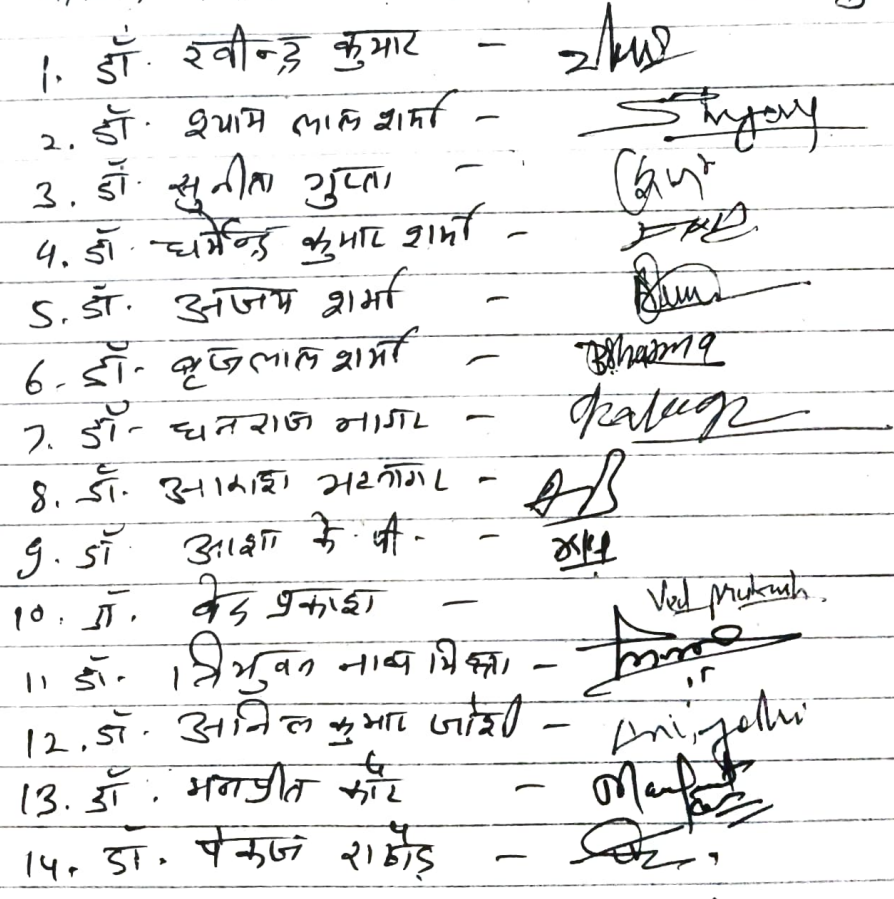 1. डॉ. रवीन्द्र कुमार -
2. डॉ. श्याम लाल शर्मा -
3. डॉ. सुनीता गुप्ता -
4. डॉ. धर्मेन्द्र कुमार शर्मा -
5. डॉ. अजय शर्मा -
6. डॉ. बृजलाल शर्मा - BSharma
7. डॉ. धनराज नागर -
8. डॉ. आकाश भटनागर - AB
9. डॉ आशा के. पी. - आशा
10. डॉ. वेद प्रकाश - Ved prakash.
11 डॉ. त्रिभुवन नाथ मिश्रा -
12. डॉ. अनिल कुमार जोशी -
13. डॉ. मनप्रीत कौर -
14. डॉ. पंकज राठौड़ -